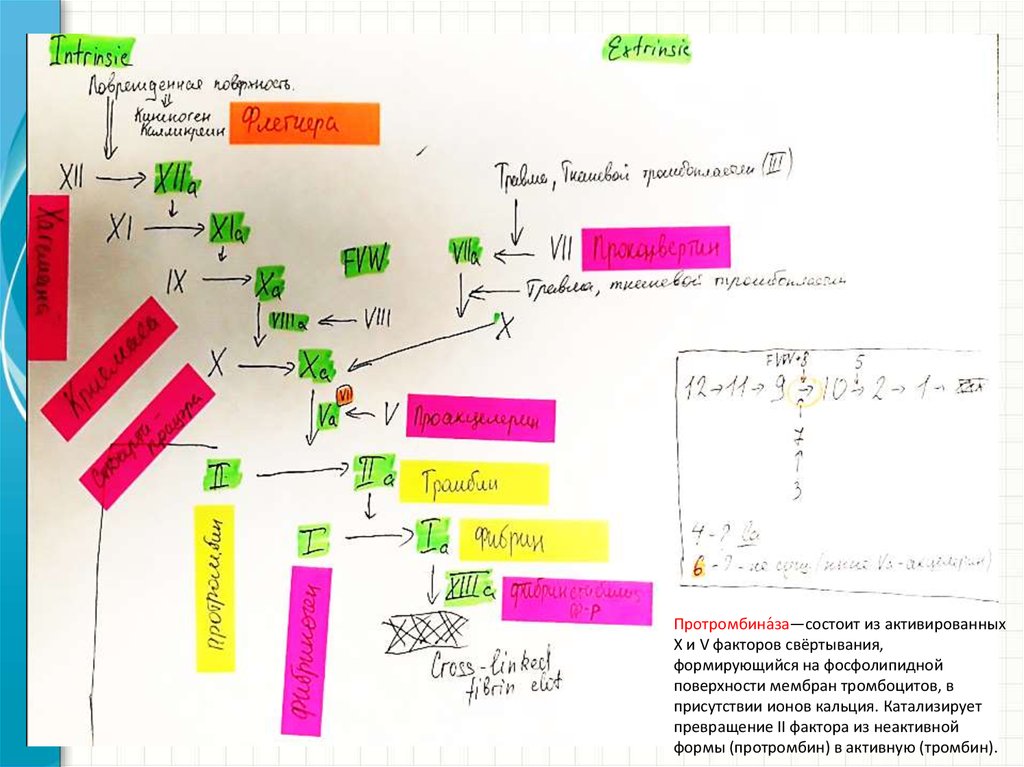 Intrinsic
Extrinsic
Поврежденная поверхность.
Кининоген
Калликреин
Флетчера
XII → XIIa
Хагемана
XI → XIa
IX → Xa
FVW
VIIIa ← VIII
X → Xa
Травма, Тканевой тромбопластин (III)
VIIa ← VII
Проконвертин
Травма, тканевой тромбопластин
X
Кристмаса
Стюарта
Прауэра
VI
Va ← V
Проакцелерин
II → IIa
Тромбин
Протромбин
I → Ia
Фибрин
Фибриноген
XIIIa
Фибринстабилиз
ф-р
Cross-linked
fibrin clot
FVW+8 5
12→11→9→10→2→1→
7
↑
3
4-? Ca
6-?-не сущ (ныне Va-акцелерин)
Протромбина́за—состоит из активированных
X и V факторов свёртывания,
формирующийся на фосфолипидной
поверхности мембран тромбоцитов, в
присутствии ионов кальция. Катализирует
превращение II фактора из неактивной
формы (протромбин) в активную (тромбин).